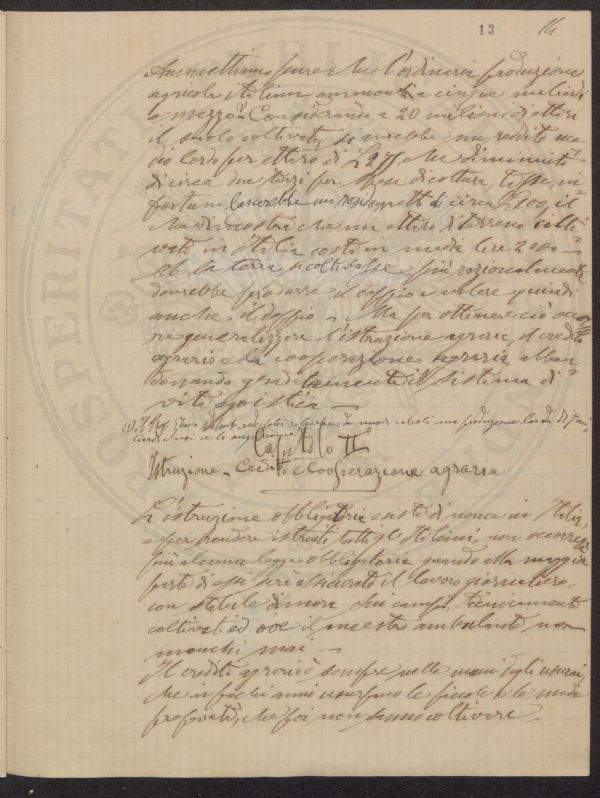 13 14
Ammettiamo pure che l'ordinaria produzione
agricola italiana ammonti a cinque miliardi
e mezzo (1) Considerando a 20 milioni di ettari
il suolo coltivato, si avrebbe un reddito me-
dio lordo per ettaro di L 275 che diminuito
di circa due terzi per spese di coltura, tasse, in-
fortuni, lascerebbe un reddito netto di circa L 100, il
che dimostra che un ettaro di terreno colti-
vato in Italia costa in media lire 2000 -
Se la terra si coltivasse più razionalmente
dovrebbe produrre il doppio e valere quindi
anche il doppio - Ma per ottenere ciò occor-
re generalizzare l'istruzione agraria, il credito
agrario e la cooperazione agraria, abban-
donando gradatamente il sistema di
vita egoistica -
(1) Il Prof. Ghino Valenti crede poter rilevare da nuovi calcoli una produzione lorda di 7 mi-
liardi
Capitolo II
Istruzione - Credito e Cooperazione agraria
L'istruzione obbligatoria esiste di nome in Italia,
e per rendere istruiti tutti gli Italiani, non occorrerà
più alcuna legge obbligatoria quando alla maggior
parte di essi sarà assicurato il lavoro giornaliero,
con stabile dimora sui campi tecnicamente
coltivati ed ove il maestro ambulante non
manchi mai -
Il credito agrario è sempre nelle mani degli usurai,
che in pochi anni usurpano le piccole e le medie
proprietà, che poi non sanno coltivare -